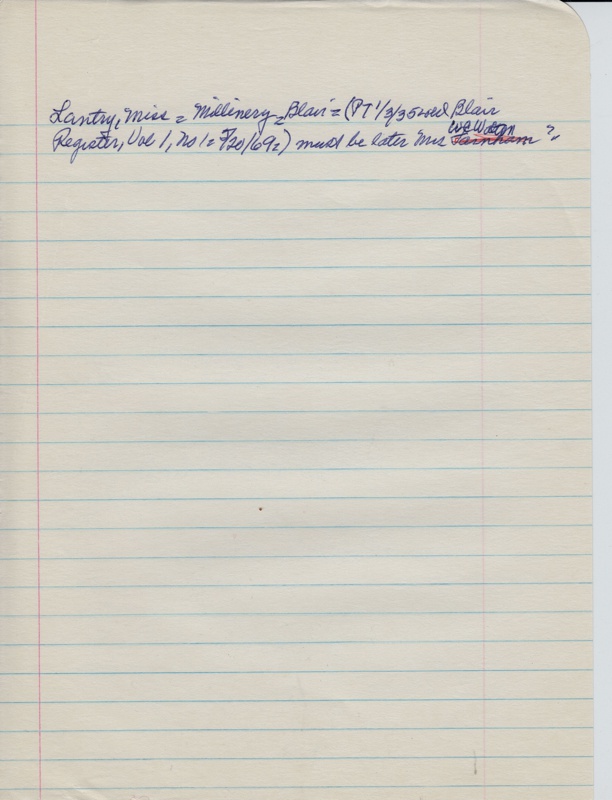 Lantry, Miss = Millinery = Blair = (PT 1/3/35 used Blair
Register, Vol 1, No 1 = 7/20/69 =) must be later Mrs W C Walton Farnham ?